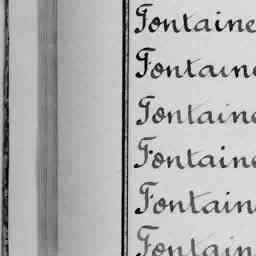 Fontaine
Fontaine
Fontaine
Fontaine
Fontain
Fontain